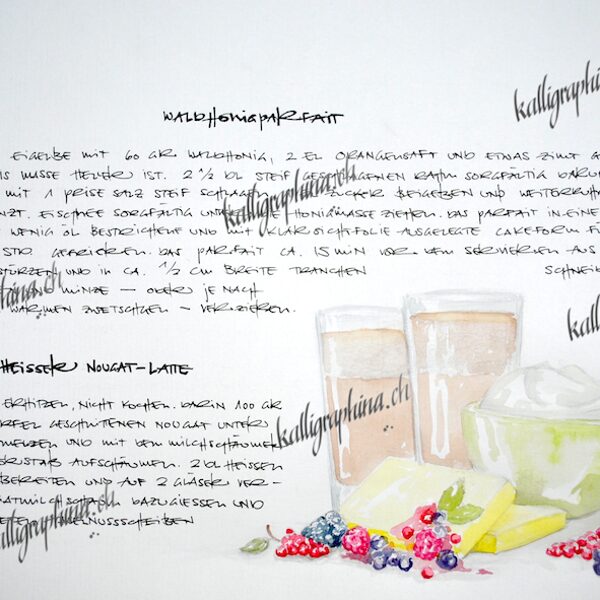 WALDHONIGPARFAIT
EIGELBE MIT 60 GR WALDHONIG, 2 EL ORANGENSAFT UND ETWAS ZIMT
MASSE HELLER IST. 2 ½ DL STEIF GESCHLAGENEN RAHM SORGFÄLTIG
MIT 1 PRISE SALZ STEIF SCHLAGEN ZUCKER BEIGEBEN UND
EISCHNEE SORGFÄLTIG UNTER DIE HONIGMASSE ZIEHEN. DAS PARFAIT IN EINE
WENIG ÖL BESTRICHENE UND MIT KLARSICHTFOLIE AUSGELEGTE CAKEFORM
STD. GEFRIEREN. DAS PARFAIT CA. 15 MIN VOR DEM SERVIEREN AUS
STÜRZEN UND IN CA. ½ CM BREITE TRANCHEN SCHNEI
MINZE – ODER JE NACH
WARMEN ZWETSCHGEN – VERZIEREN.
HEISSER NOUGAT-LATTE
ERHITZEN, NICHT KOCHEN. DARIN 100 GR
GESCHNITTENEN NOUGAT UNTER
UND MIT DEM MILCHSCHÄUMER
AUFSCHÄUMEN. 2 DL HEISSEN
UND AUF 2 GLÄSER VER-
DAZUGIESSEN UND
kalligraphina.ch
kalligraphina.ch
kalligraphina.ch